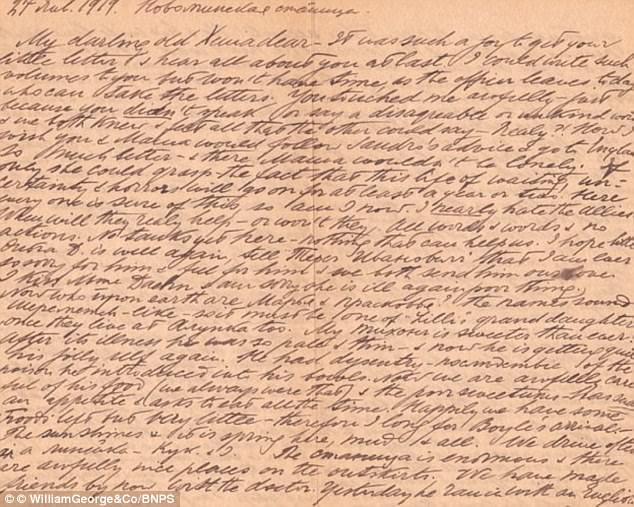 1919. Новоминская станица.
My darling old Xenia dear - It was such a joy to get your
little letter & hear all about you at last. I could write such
volumes to you but won't have time, as the officer leaves today
who can take the letters. You touched me awfully
because you didn't speak or say a disagreeable or unkind word
& we both knew & felt all that the other could say - Realy?! How I
wish you & Mama would follow Sandro's advice & go to
So much better - & there Mama wouldn't be lonely. If
only she could grasp the fact that this life of waiting, un-
certainty & horrors will go on for at least a year or two. Here
every one is sure of this so am I now. I nearly hate the allies
When will they realy help - or won't they - all words & words & no
actions. No tanks yet here - nothing that can help us. I hope
D. is well again. Tell that I am ever
so sorry for him & feel for him - we both send him our love
I kiss Mme am sorry she is ill again poor thing.
Now who upon earth are The names sound
so it must be one of grand daughters
once they live at too. My is sweeter than ever
after its illness he was so pale & thin - now he is getting quite
his jolly self again. He had dysentry of the
poison he introduced into his bowls. Now we are awfully care-
ful of his food (we always were that) & the poor sweetums - has such
an appetite & asks to eat all the time. Happily we have some
left but very little - therefore I long for Boyle's arrival.
The sun shines & it is spring here, mud & all. We drive often
in a & The станица is enormous & there
are awfully nice places on the outskirts. We have made
friends by now with the doctor. Yesterday he
© WilliamGeorge&Co/BNPS